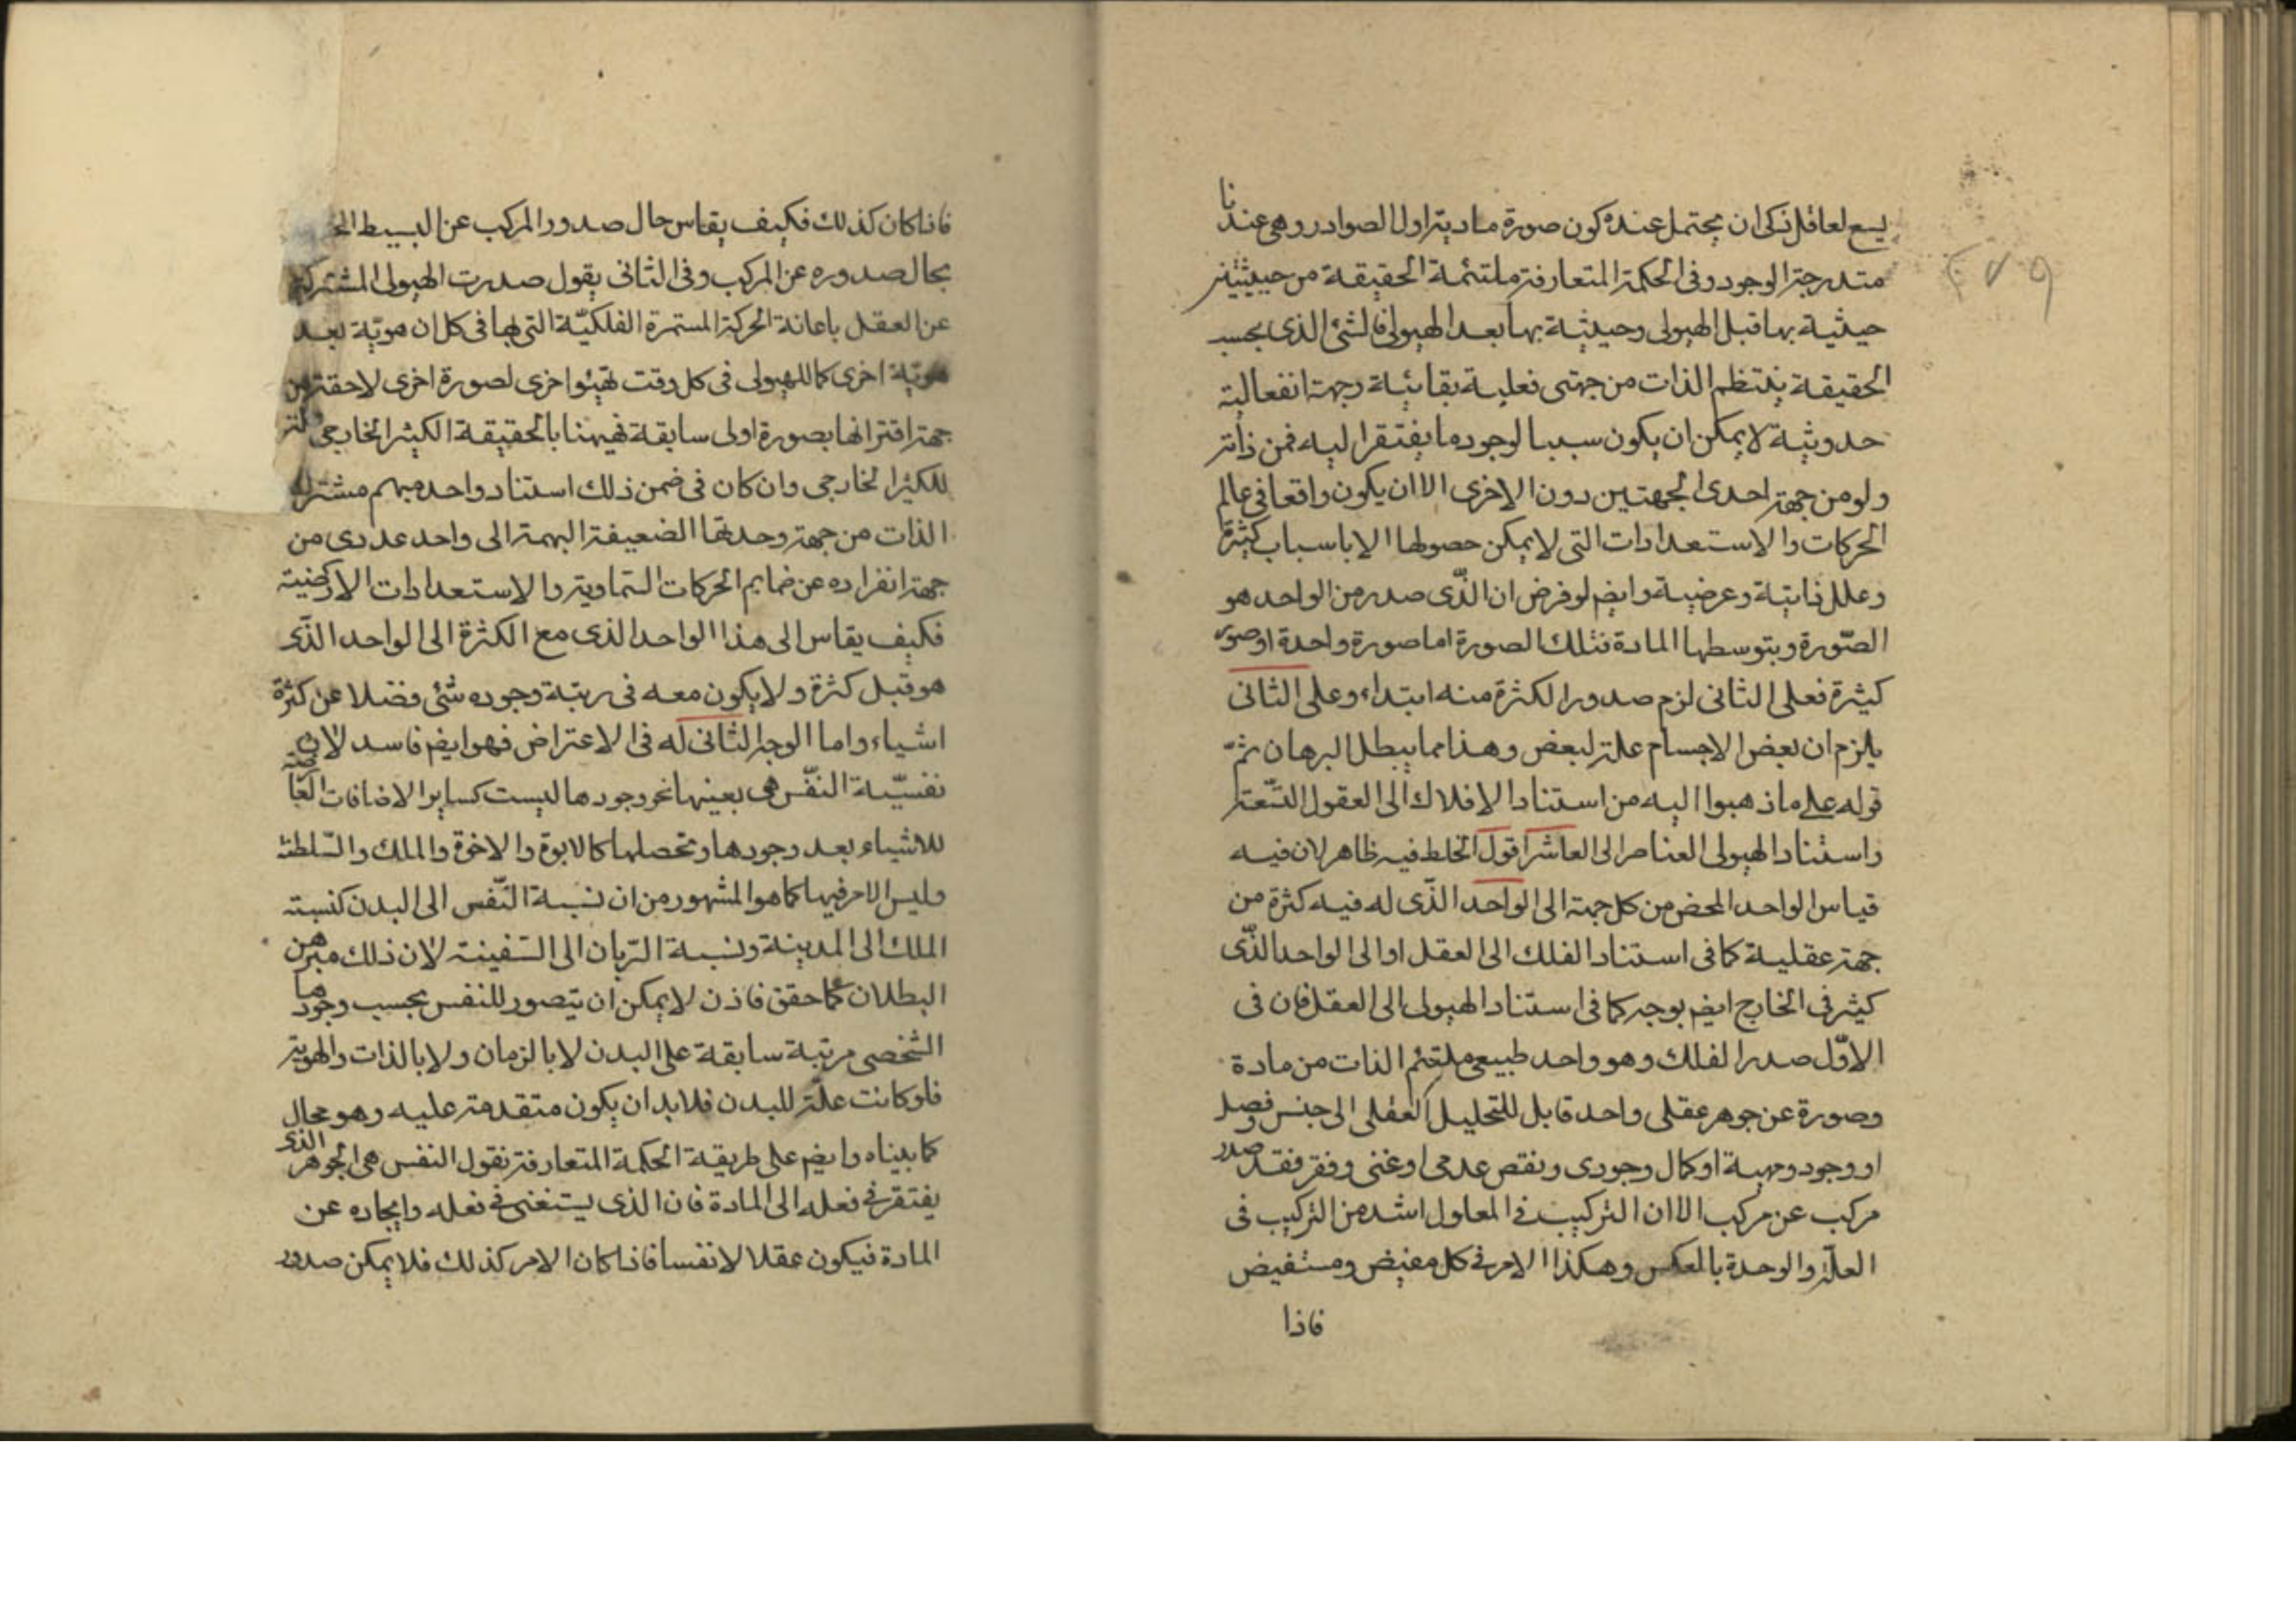 يسع لعاقل ذكى ان يحتمل عنده كون صورة مادية اول الصوادر وهى عندنا
متدرجة الوجود وفى الحكمة المتعارفة ملتئمة الحقيقة من حيثيتين
حيثية بها قبل الهيولى وحيثية بها بعد الهيولى فالشئ الذى بحسب
الحقيقة ينتظم الذات من جهتى فعلية بقائية وجهة انفعالية
حدوثية لا يمكن ان يكون سببا لوجود ما يفتقر اليه فمن ذاته
ولو من جهة احدى الجهتين دون الاخرى الا ان يكون واقعا فى عالم
الحركات والاستعدادات التى لا يمكن حصولها الا باسباب كثيرة
وعلل ذاتية وعرضية وايضم لو فرض ان الذّى صدر من الواحد هو
الصّورة وبتوسطها المادة فتلك الصورة اما صورة واحدة او صور
كثيرة فعلى الثانى لزم صدور الكثرة منه ابتداء وعلى الثانى
يلزم ان بعض الاجسام علة لبعض وهذا مما يبطل البرهان ثمّ
قوله على ما ذهبوا اليه من استناد الافلاك الى العقول التّسعة
واستناد الهيولى العناصر الى العاشر اقول الخلط فيه ظاهر لان فيه
قياس الواحد المحض من كل جهة الى الواحد الذّى له فيه كثرة من
جهة عقلية كما فى استناد الفلك الى العقل او الى الواحد الذّى
كثير فى الخارج ايضم بوجه كما فى استناد الهيولى الى العقل فان فى
الاوّل صدر الفلك وهو واحد طبيعى ملتئم الذات من مادة
وصورة عن جوهر عقلى واحد قابل للتحليل العقلى الى جنس وفصل
او وجود ومهية او كمال وجودى ونقص عدمى او غنى وفقر فقد صدر
مركب عن مركب الا ان التركيب فى المعلول اشد من التركيب فى
العلّة والوحدة بالعكس وهكذا الامر فى كل مفيض ومستفيض
فاذا
فاذا كان كذلك فكيف يقاس حال صدور المركب عن البسيط
بحال صدوره عن المركب وفى الثانى يقول صدرت الهيولى المشتركة
عن العقل باعانة الحركة المستمرة الفلكيّة التى لها فى كل ان هويّة بعد
هويّة اخرى كما للهيولى فى كل وقت تهيئو اخرى لصورة اخرى لاحقة من
جهة اقترانها بصورة اولى سابقة فهيهنا بالحقيقة الكثير الخارجى
للكثير الخارجى وان كان فى ضمن ذلك استناد واحد مبهم مشترك
الذات من جهة وحدتها الضعيفة البهمة الى واحد عددى من
جهة انفراده عن ضمايم الحركات السّماوية والاستعدادات الارضية
فكيف يقاس الى هذا الواحد الذى مع الكثرة الى الواحد الذّى
هو قبل كثرة ولا يكون معه فى رتبة وجوده شئ فضلا عن كثرة
اشياء واما الوجه الثانى له فى الاعتراض فهو ايضم فاسد لان
نفسيّة النفّس هى بعينها نحو وجودها ليست كساير الاضافات العارضة
للاشياء بعد وجودها وتحصلها كالابوة والاخوة والملك والسّلطنة
وليس الامر فيها كما هو المشهور من ان نسبة النّفس الى البدن كنسبة
الملك الى المدينة ونسبة الرّبان الى السّفينة لان ذلك مبرهن
البطلان كما حقق فاذن لا يمكن ان يتصور للنفس بحسب وجودها
الشخصى مرتبة سابقة على البدن لا بالزمان ولا بالذات والهوية
فلو كانت علّة للبدن فلابد ان يكون متقدمة عليه وهو محال
كما بيناه وايضم على طريقة الحكمة المتعارفة نقول النفس هى الجوهر الذى
يفتقر فى فعله الى المادة فان الذى يستغنى فى فعله وايجاده عن
المادة فيكون عقلا لا نفسا فاذا كان الامر كذلك فلا يمكن صدور